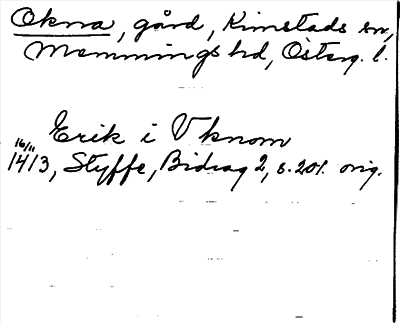 Okna, gård, Kimstads sn,
Memmings hd, Österg. l.
Erik i Vknom
16/11 1413, Styffe, Bidrag 2, s. 201. orig.